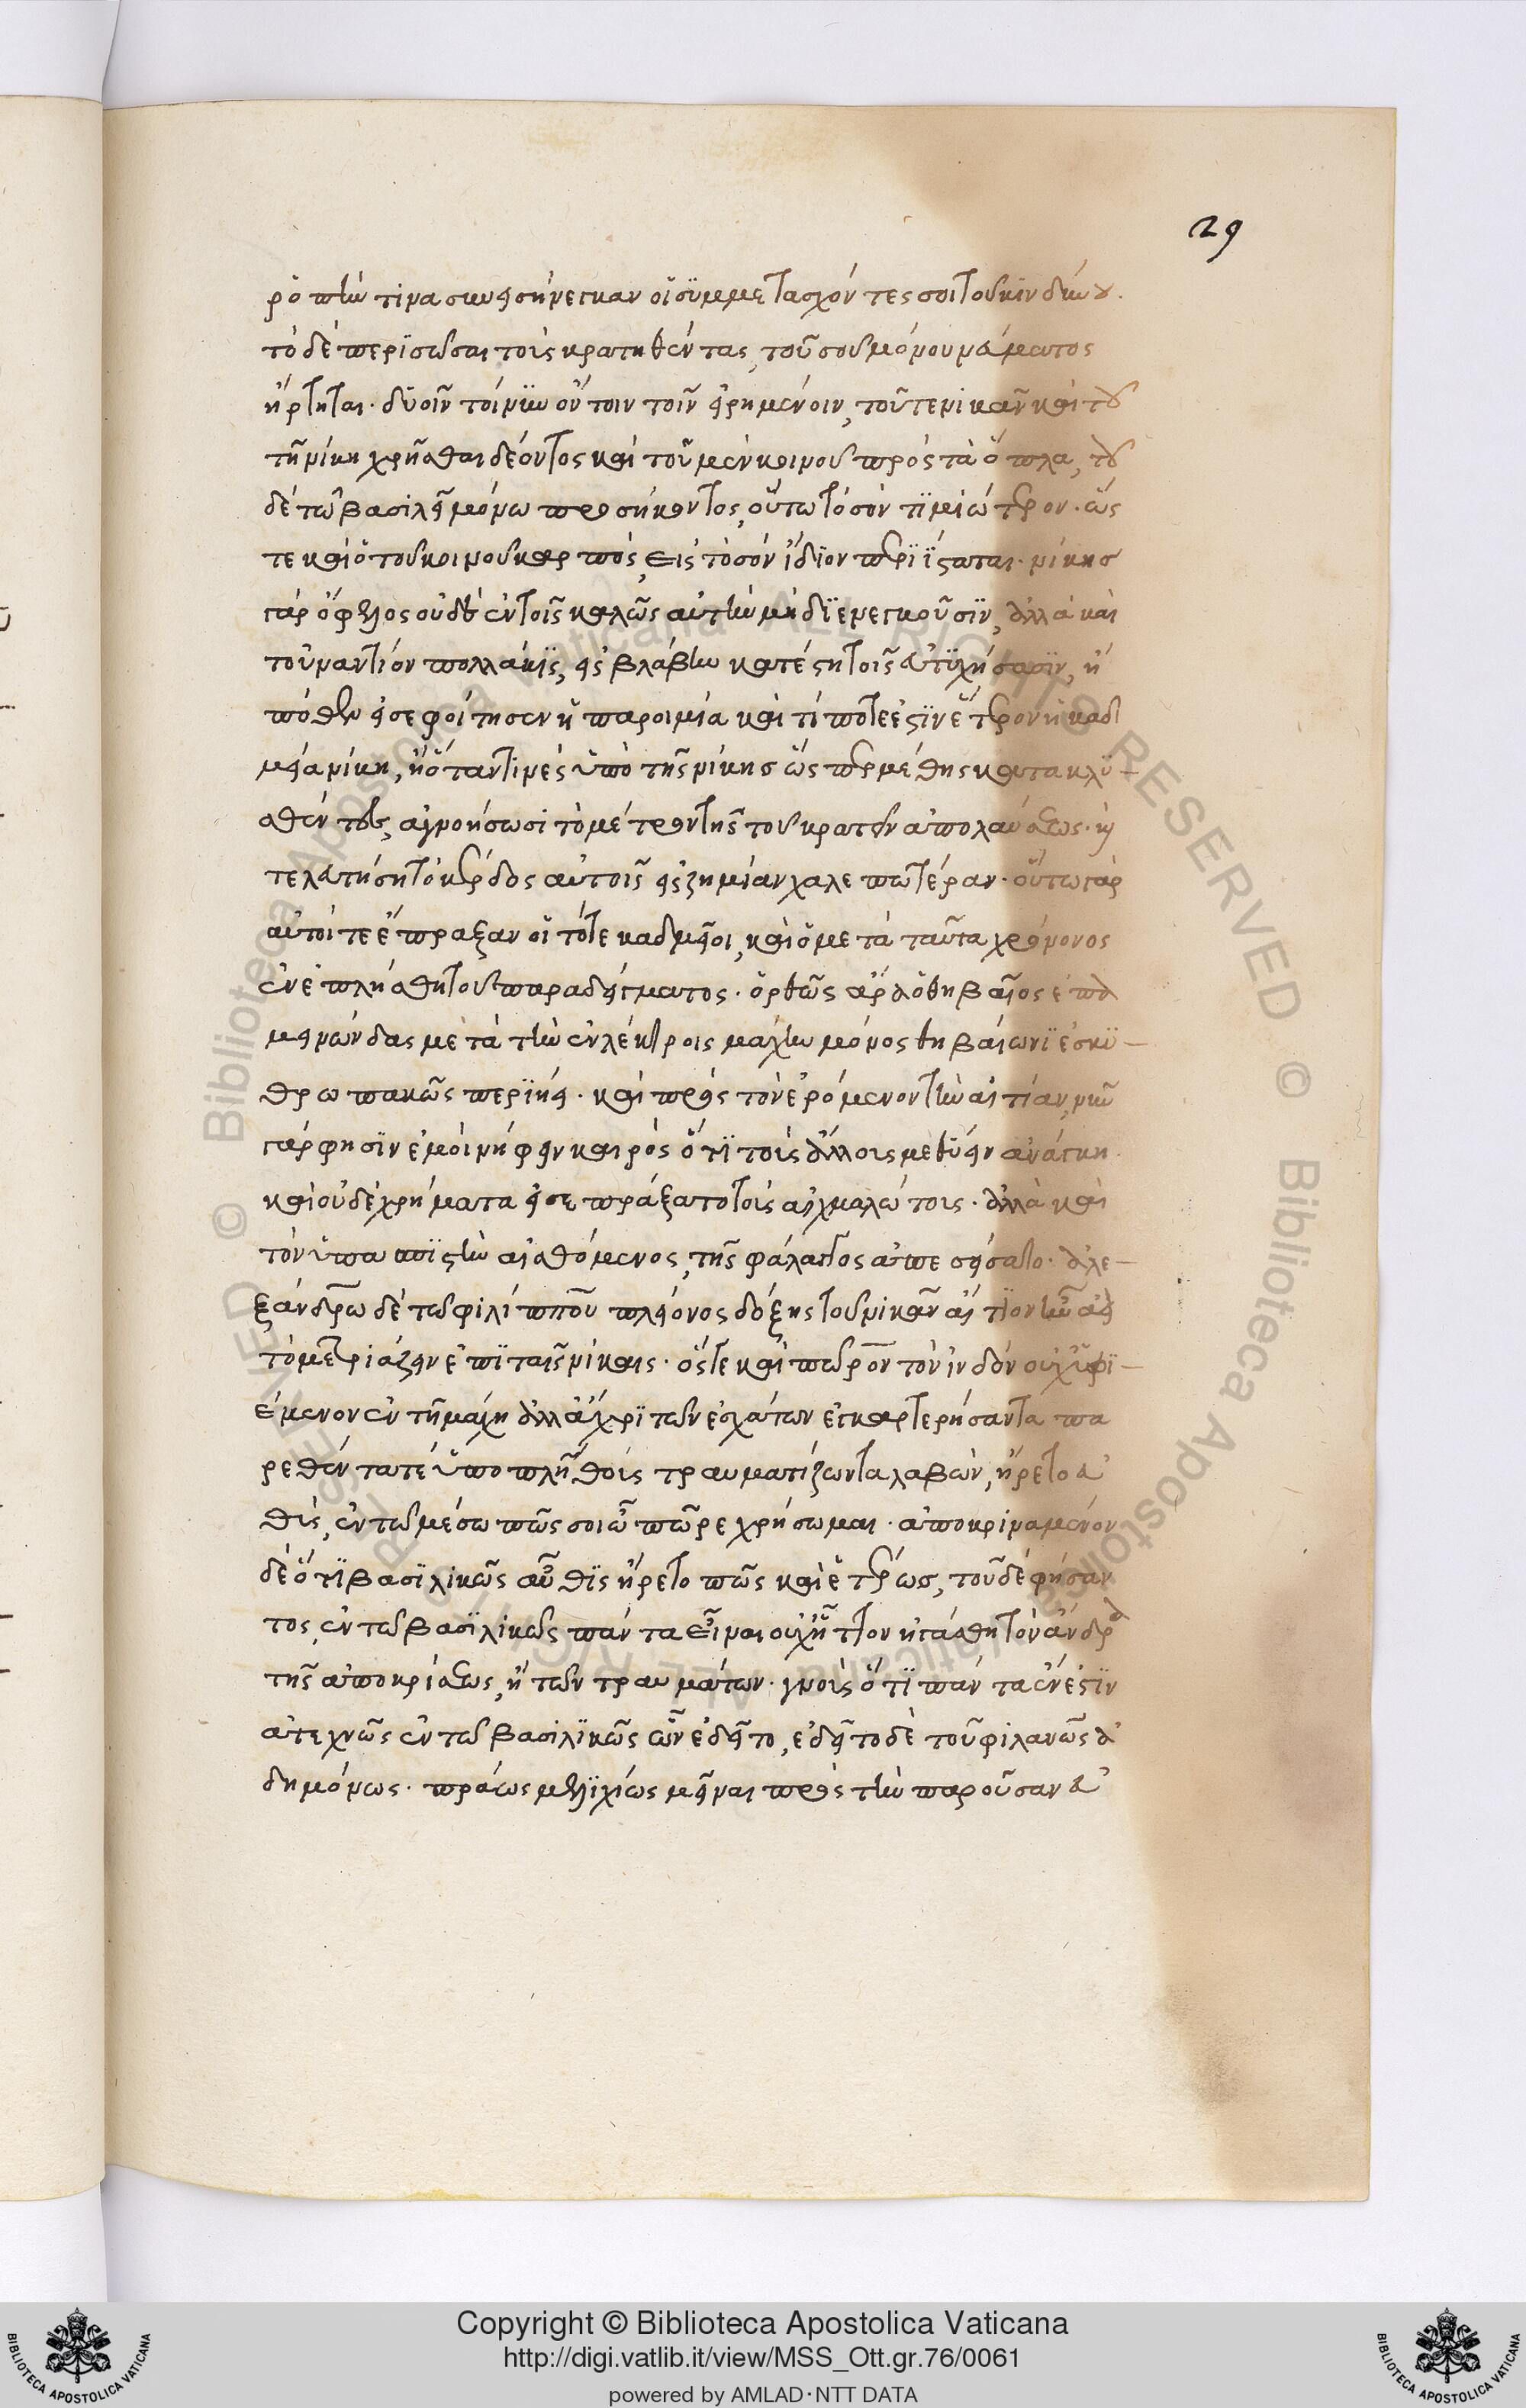 29
ροπὴν τινα συνεισήνεγκαν οἱ συμμετασχόντες σοι τοῦ κινδύνου.
τὸ δὲ περισῶσαι τοὺς κρατηθέντας, τοῦ σοῦ μόνου νεύματος
ἤρτηται. δυοῖν τοίνυν ὄντοιν τοῖν εἰρημένοιν, τοῦ τε νικᾶν καὶ τοῦ
τῇ νίκῃ χρῆσθαι δεόντως καὶ τοῦ μὲν κοινοῦ πρὸς τὰ ὅπλα, τοῦ
δὲ τῷ βασιλεῖ μόνῳ προσήκοντος, οὕτω τὸ σὸν τιμιώτερον. ὥς
τε καὶ ὁ τοῦ κοινοῦ καρπὸς, εἰς τὸ σὸν ἴδιον περιίσταται. νίκης
γὰρ ὄφελος οὐδὲν τοῖς καλῶς αὐτὴν μὴ διενεγκοῦσιν, ἀλλὰ καὶ
τοὐναντίον πολλάκις, εἰς βλάβην κατέστη τοῖς εὐτυχήσασιν, ἢ
πόθεν εἰσεφοίτησεν ἡ παροιμία καὶ τί ποτε ἐστὶν ἕτερον ἡ καδ
μεία νίκη, ἢ ὅταν τινὲς ὑπὸ τῆς νίκης ὥσπερ μέθης κατακλυ–
σθέντες, ἀγνοήσωσι τὸ μέτρον τῆς τοῦ κρατεῖν ἀπολαύσεως. καὶ
τελευτήσῃ τὸ κέρδος αὐτοῖς εἰς ζημίαν χαλεπωτέραν. οὕτω γὰρ
αὐτοί τε ἔπραξαν οἱ τότε καδμεῖοι, καὶ ὁ μετὰ ταῦτα χρόνος
ἐνεπλήσθη τοῦ παραδείγματος. ὀρθῶς ἄρα ὁ θηβαῖος ἐπα
μεινώνδας μετὰ τὴν ἐν λεύκτροις μάχην μόνος θηβαίων ἐσκυ–
θρωπακὼς περιῄει. καὶ πρὸς τὸν ἐρόμενον τὴν αἰτίαν, νῦν
γάρ φησιν ἐμοὶ νήφειν καιρὸς ὅτι τοῖς ἄλλοις μεθύειν ἀνάγκη.
καὶ οὐδὲ χρήματα εἰσεπράξατο τοὺς αἰχμαλώτους. ἀλλὰ καὶ
τὸν ὑπασπιστὴν αἰσθόμενος, τῆς φάλαγγος ἀπεσείσατο. ἀλε–
ξάνδρῳ δὲ τῷ φιλίππου πλείονος δόξης τοῦ νικᾶν αἴτιον ἦν ἀεὶ
τὸ μετριάζειν ἐπὶ ταῖς νίκαις. ὅς γε καὶ πῶρον τὸν ἰνδὸν οὐχ ὑφι–
έμενον ἐν τῇ μάχῃ ἀλλ' ἄχρι τῶν ἐσχάτων ἐγκαρτερήσαντα πα
ρεθέντα τε ὑπὸ πλήθους τραυματίζοντα λαβὼν, ἤρετο εὐ
θὺς, ἐν τῷ μέσῳ πῶς σοι ὦ πῶρε χρήσωμαι. ἀποκριναμένου
δὲ ὅτι βασιλικῶς αὖθις ἤρετο πῶς καὶ ἑτέρως, τοῦ δὲ φήσαν
τος, ἐν τῷ βασιλικῶς πάντα εἶναι οὐχ ἧττον ἠγάσθη τὸν ἄνδρα
τῆς ἀποκρίσεως, ἢ τῶν τραυμάτων. γνοὺς ὅτι πάντα ἔνεστιν
ἀτεχνῶς ἐν τῷ βασιλικῶς ὧν ἐδεῖτο, ἐδεῖτο δὲ τοῦ φιλανθρώπως εὐ
δημόνως. πράως μειλιχίως μεῖναι πρὸς τὴν παροῦσαν εὐ
Copyright © Biblioteca Apostolica Vaticana
http://digi.vatlib.it/view/MSS_Ott.gr.76/0061
powered by AMLAD·NTT DATA